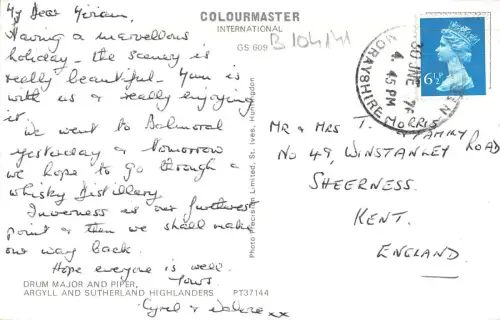 COLOURMASTER
INTERNATIONAL
GS 609
B104/41
My Dear Miriam,
Having a marvellous
holiday - the scenery is
really beautiful - Mum is
with us & really enjoying
it.
We went to Balmoral
yesterday & tomorrow
we hope to go through a
whisky distillery.
Inverness is our furthest
point & then we shall make
our way back.
Hope everyone is well.
Yours
Cyril & xx
DRUM MAJOR AND PIPER,
ARGYLL AND SUTHERLAND HIGHLANDERS PT37144
Photo Precision Limited, St. Ives, Huntingdon
30 JNE
4.45 PM
MORAYSHIRE
6½P
MR & MRS T. MORRIS
& FAMILY
NO 49, WINSTANLEY ROAD
SHEERNESS.
KENT.
ENGLAND.